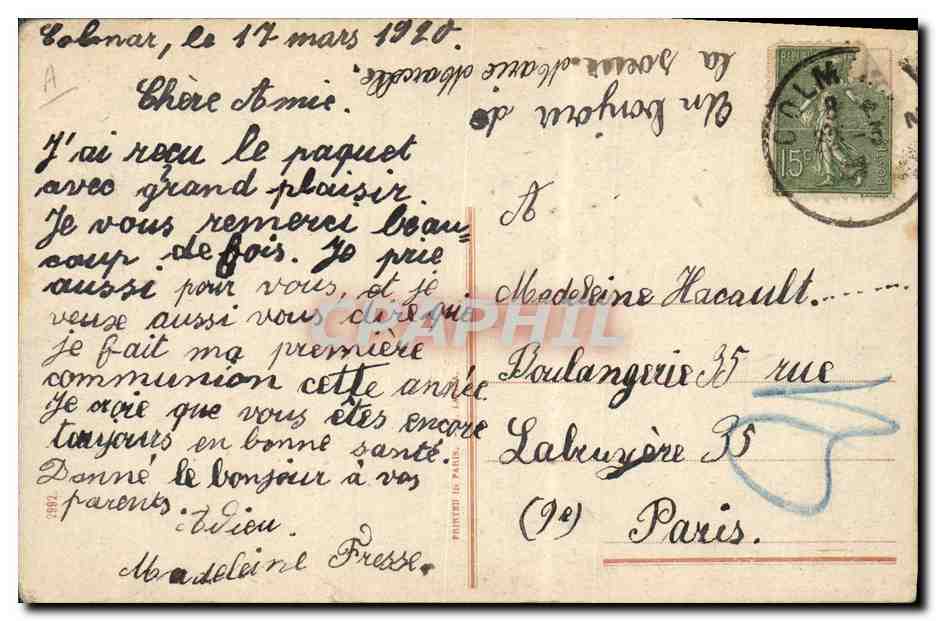 Colmar, le 17 mars 1920.
Chère Amie.
J'ai reçu le paquet
avec grand plaisir
Je vous remerci beau-
coup de fois. Je prie
aussi pour vous, et je
veuse aussi vous dire que
je fait ma première
communion cette année.
Je croie que vous êtes encore
toujours en bonne santé.
Donné le bonjour à vos
parents.
Adieu.
Madeleine Fresse.
Un bonjour de
la soeur Marie Marcelle.
A
A
Madeleine Hacault.
Boulangerie 35 rue
Labruyère 35
(9e) Paris.
COLM
15c
2992
PRINTED IN PARIS.
CPAPHIL